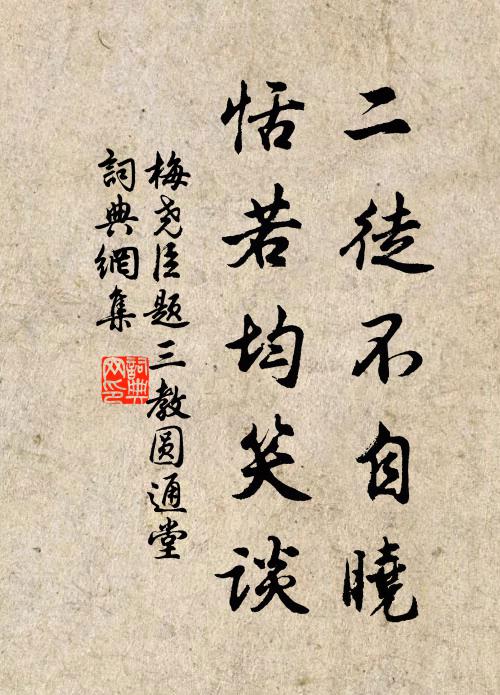 二徒不自曉
恬若均笑談
梅尧臣题三教圆通堂
詞典網集
詞典
网印